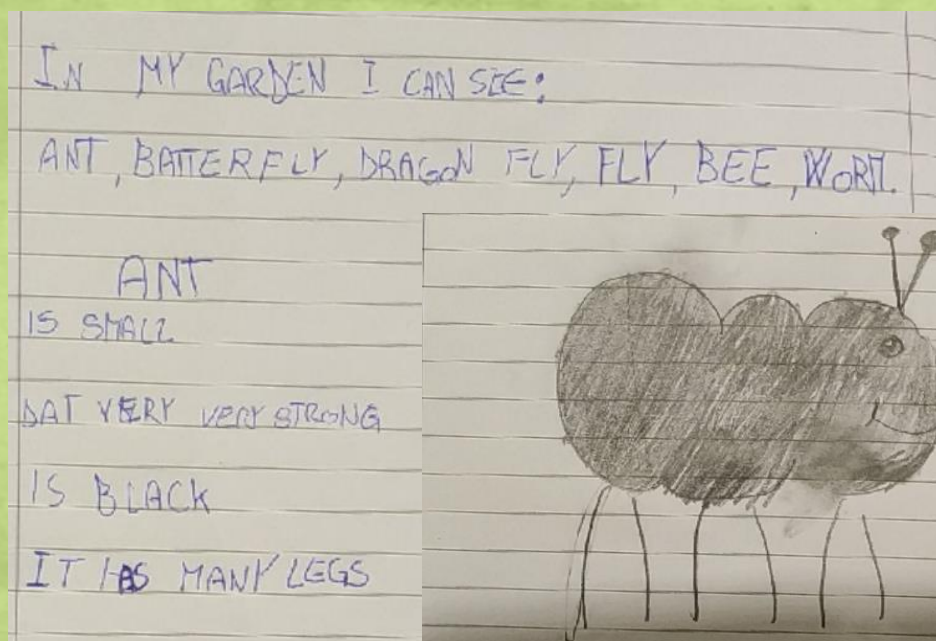 IN MY GARDEN I CAN SEE:
ANT, BATTERFLY, DRAGON FLY, FLY, BEE, WORM.
ANT
IS SMALL
BAT VERY VERY STRONG
IS BLACK
IT HAS MANY LEGS